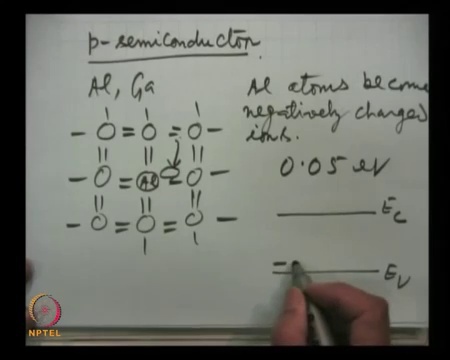 p-semiconductor
Al, Ga
Al
Al atoms become
negatively charged
ions.
0.05 eV
Ec
Ev
NPTEL